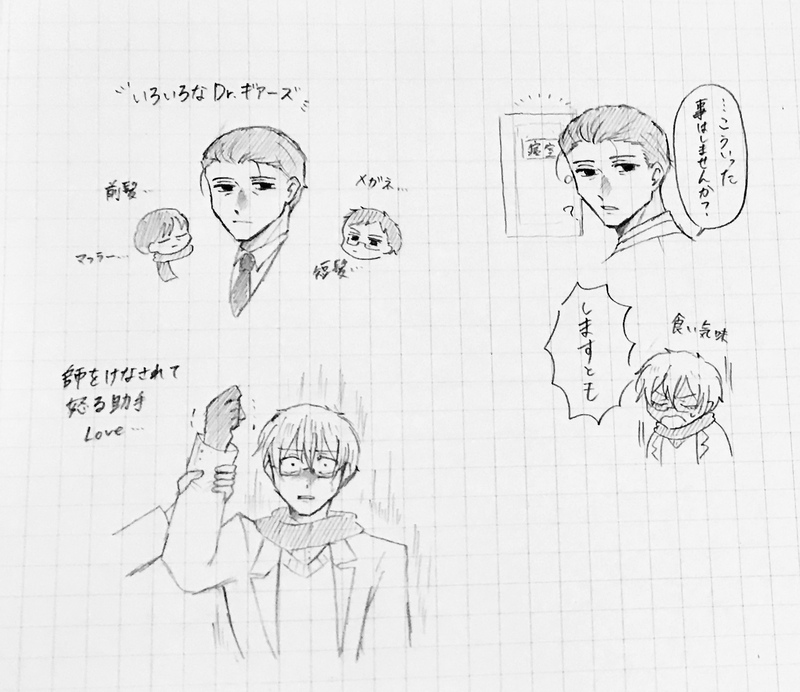 いろいろなDr.ギアーズ
前髪…
マフラー…
メガネ…
短髪…
…こういった
事はしませんか?
寝室
?
しますとも
食い気味
師をけなされて
怒る助手
Love…